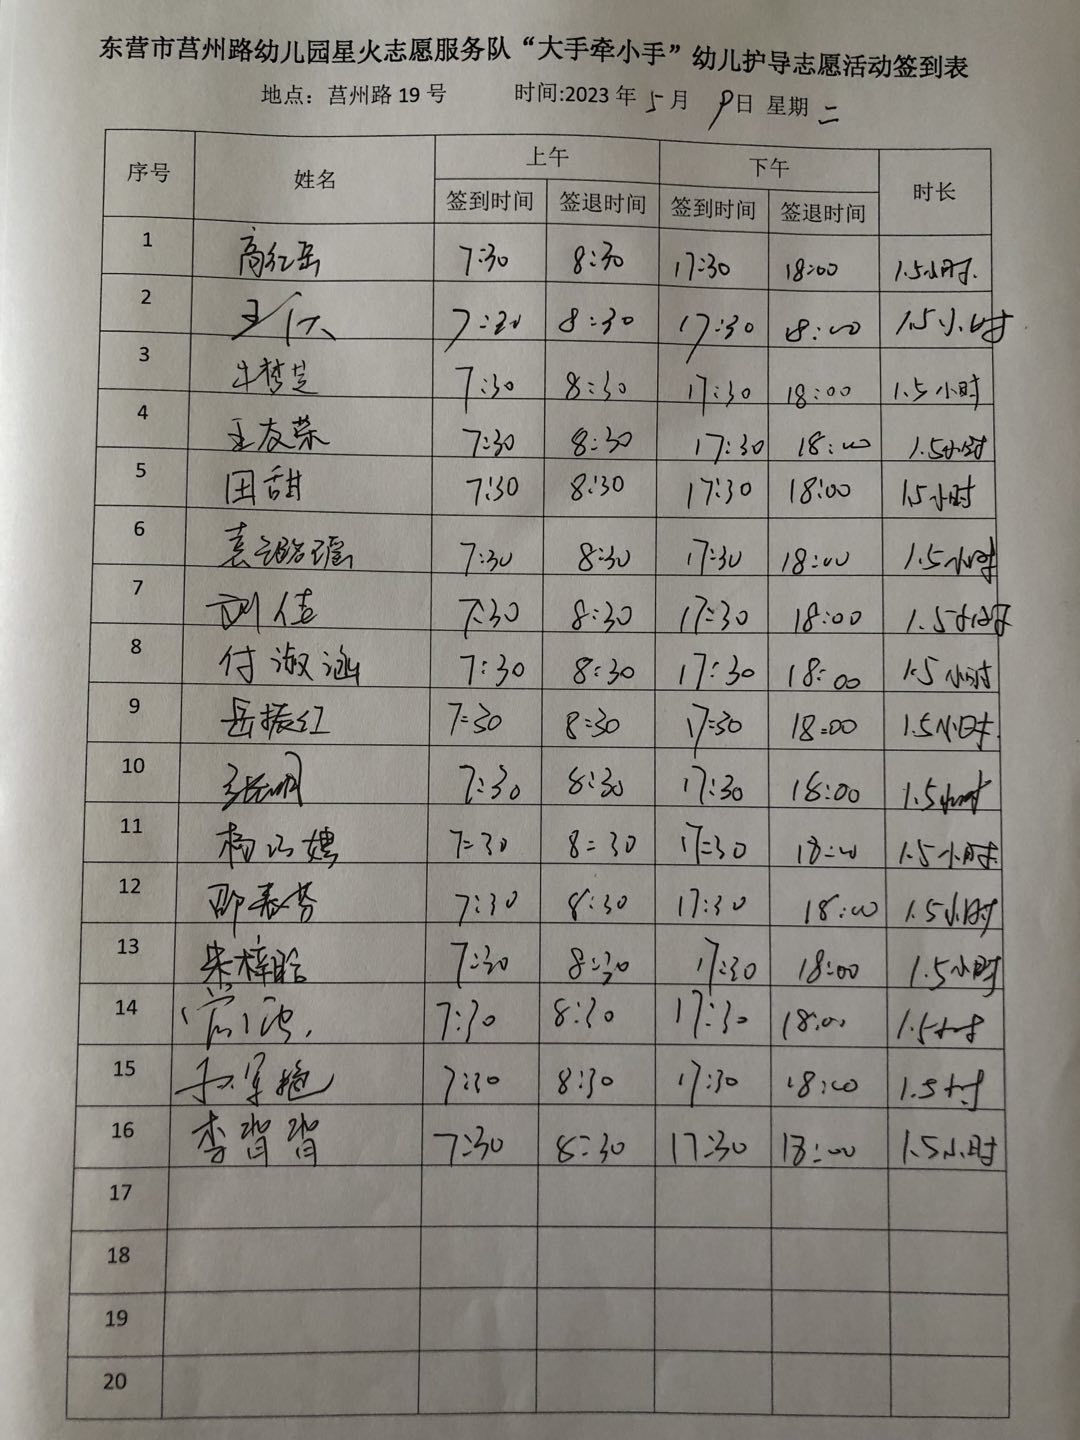 东营市莒州路幼儿园星火志愿服务队“大手牵小手”幼儿护导志愿活动签到表
地点：莒州路 19 号 时间:2023 年 5 月 9 日 星期 二
序号 姓名 上午 下午 时长
签到时间 签退时间 签到时间 签退时间
1 高红岳 7:30 8:30 17:30 18:00 1.5小时
2 7:30 8:30 17:30 18:00 1.5小时
3 牛梦芝 7:30 8:30 17:30 18:00 1.5小时
4 王友荣 7:30 8:30 17:30 18:00 1.5小时
5 田甜 7:30 8:30 17:30 18:00 1.5小时
6 袁璐瑶 7:30 8:30 17:30 18:00 1.5小时
7 刘佳 7:30 8:30 17:30 18:00 1.5小时
8 付淑涵 7:30 8:30 17:30 18:00 1.5小时
9 岳振红 7:30 8:30 17:30 18:00 1.5小时
10 张明 7:30 8:30 17:30 18:00 1.5小时
11 7:30 8:30 17:30 18:00 1.5小时
12 邵春芬 7:30 8:30 17:30 18:00 1.5小时
13 朱梓晗 7:30 8:30 17:30 18:00 1.5小时
14 7:30 8:30 17:30 18:00 1.5小时
15 7:30 8:30 17:30 18:00 1.5小时
16 李背背 7:30 8:30 17:30 18:00 1.5小时
17
18
19
20